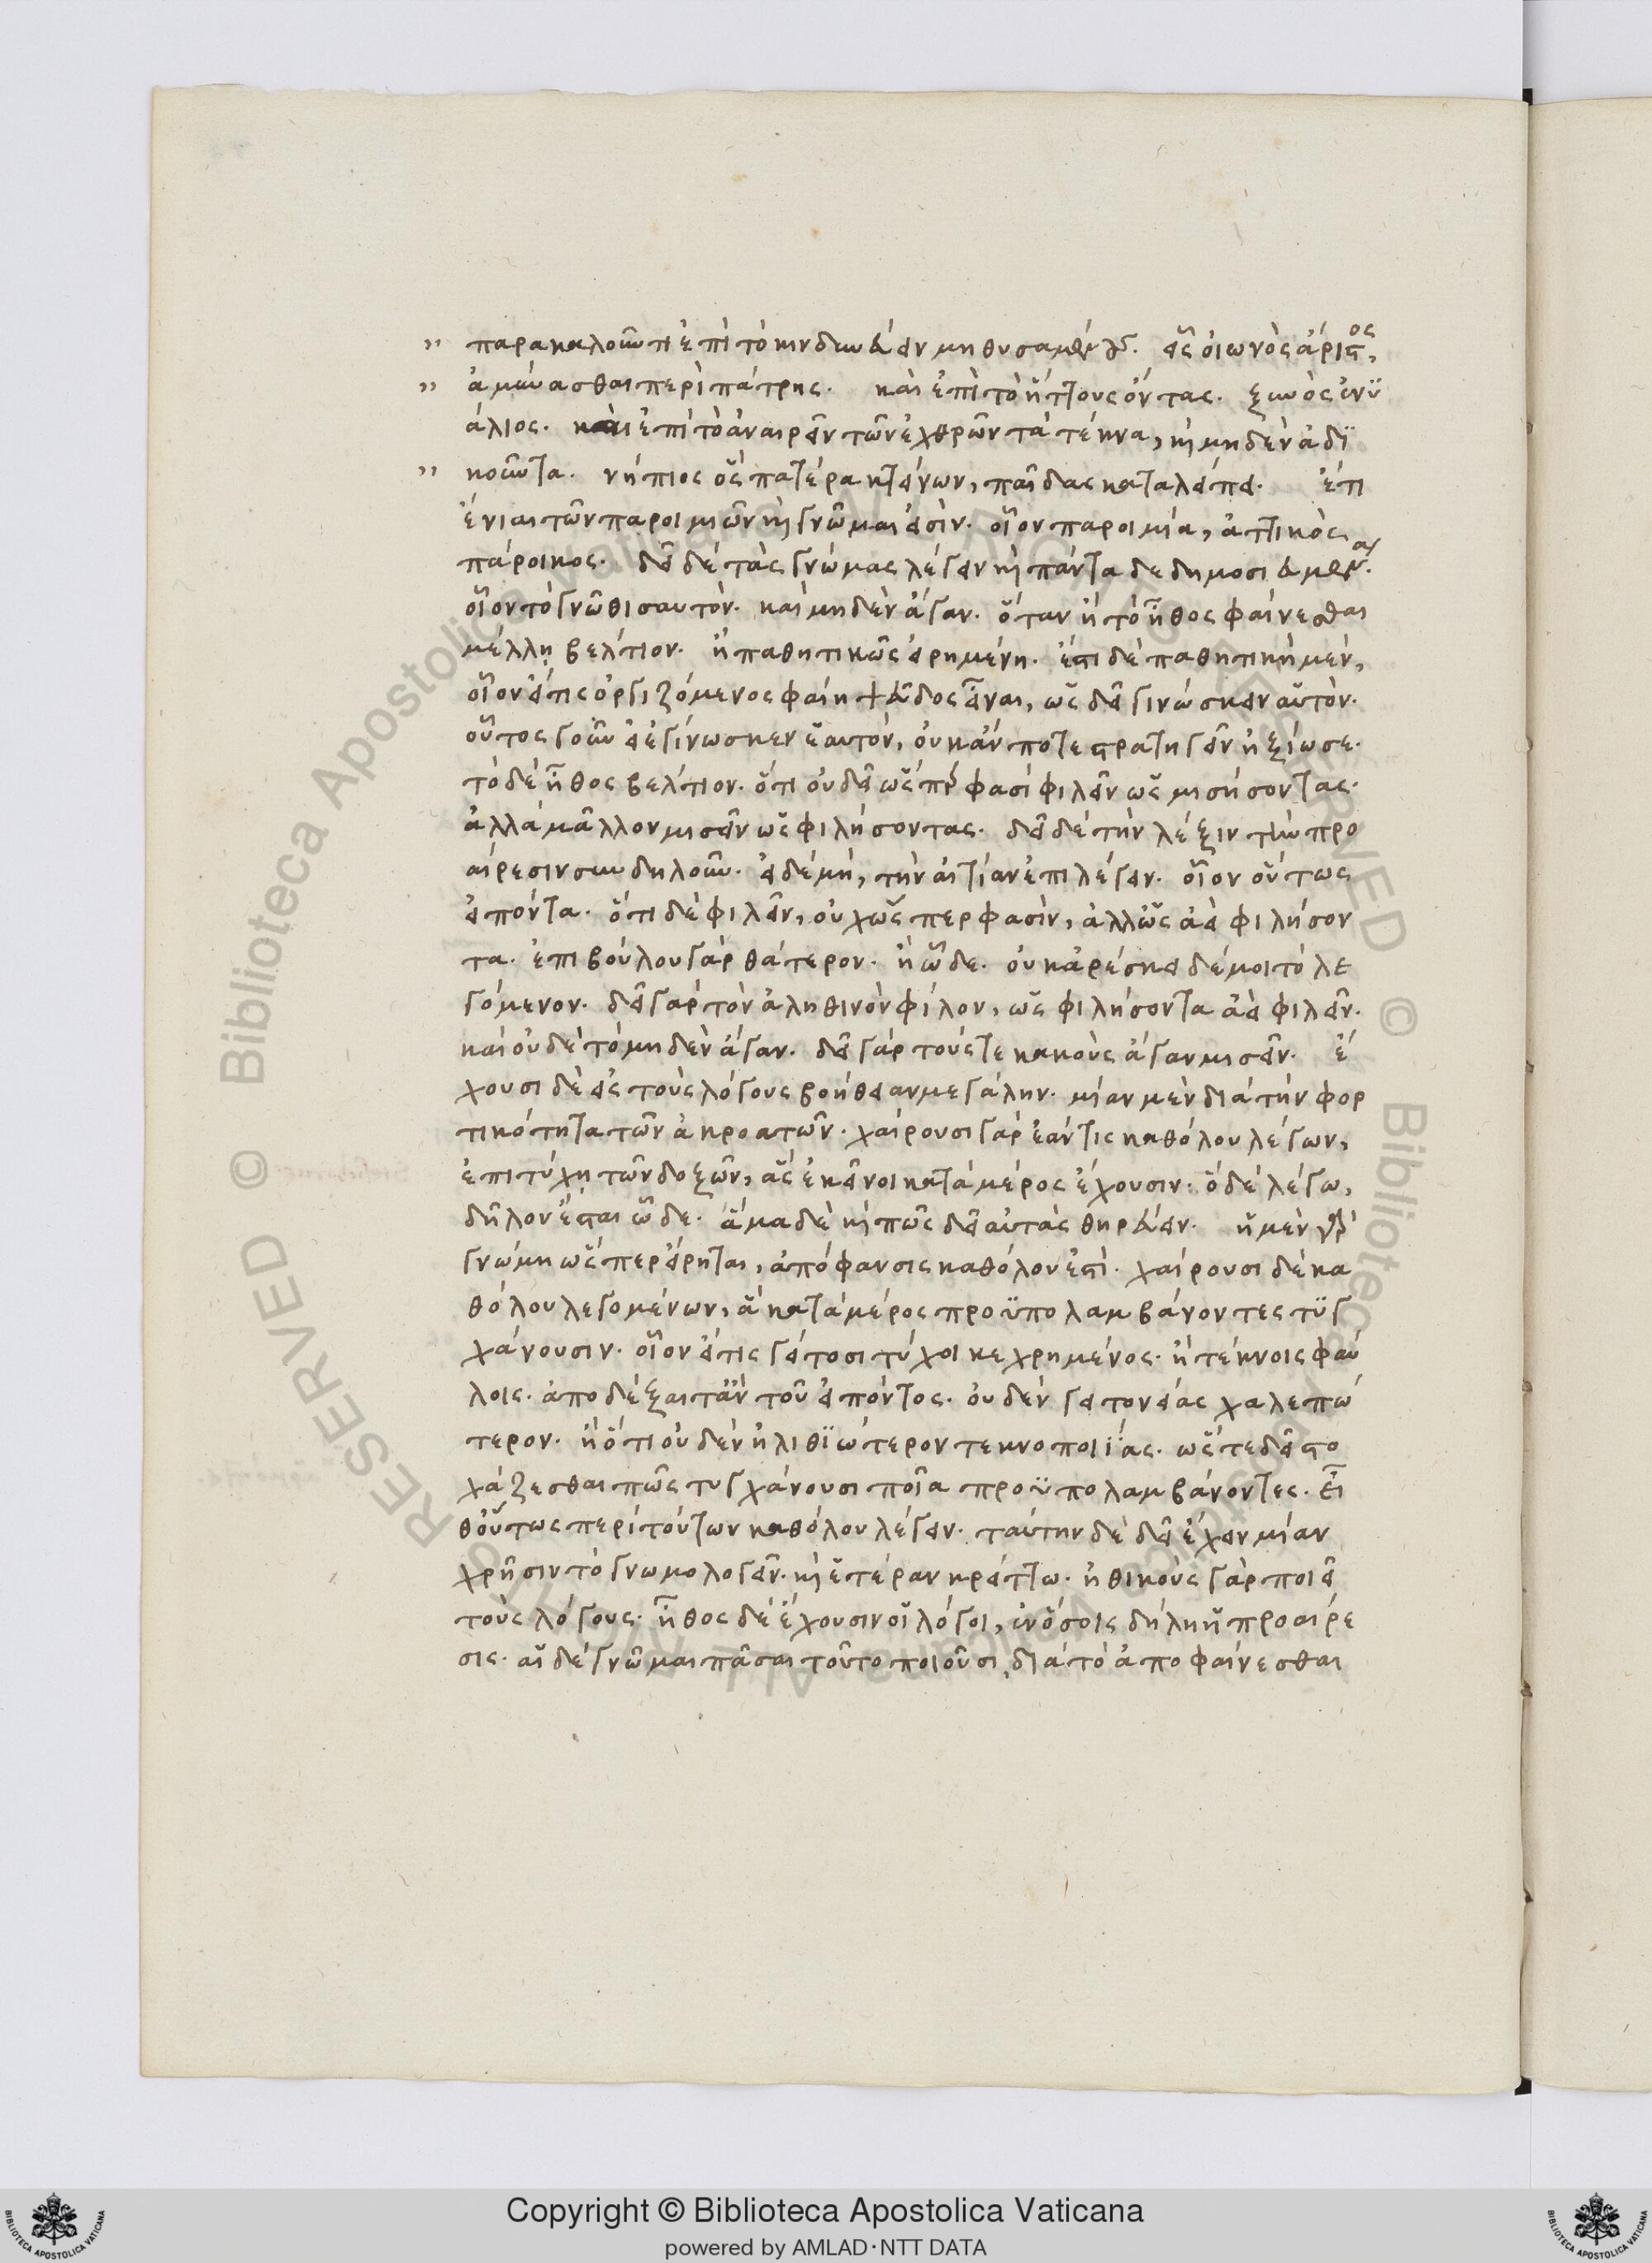 παρακαλοῦντι ἐπὶ τὸ κινδυνεύειν μὴ θυσαμένους. εἷς οἰωνὸς ἄριστος,
ἀμύνασθαι περὶ πάτρης. καὶ ἐπὶ τὸ ἥττους ὄντας. ξυνὸς ἐνυ
άλιος. καὶ ἐπὶ τὸ ἀναιρεῖν τῶν ἐχθρῶν τὰ τέκνα, καὶ μηδὲν ἀδι
κοῦντα. νήπιος ὃς πατέρα κτείνων, παῖδας καταλείπει. ἔτι
ἔνιαι τῶν παροιμιῶν καὶ γνῶμαι εἰσίν. οἷον παροιμία, ἀττικὸς
πάροικος. δεῖ δὲ τὰς γνώμας λέγειν καὶ παρὰ τὰ δεδημοσιευμένα.
οἷον τὸ γνῶθι σαυτόν. καὶ μηδὲν ἄγαν. ὅταν ἢ τὸ ἦθος φαίνεσθαι
μέλλῃ βέλτιον. ἢ παθητικῶς εἰρημένη. ἔστι δὲ παθητικὴ μὲν,
οἷον εἴ τις ὀργιζόμενος φαίη ψεῦδος εἶναι, ὡς δεῖ γινώσκειν αὑτόν.
οὗτος γοῦν εἰ ἐγίνωσκεν ἑαυτόν, οὐκ ἄν ποτε στρατηγεῖν ἠξίωσε.
τὸ δὲ ἦθος βέλτιον. ὅτι οὐ δεῖ ὥσπερ φασὶ φιλεῖν ὡς μισήσοντας.
ἀλλὰ μᾶλλον μισεῖν ὡς φιλήσοντας. δεῖ δὲ τὴν λέξιν τὴν προ
αίρεσιν συνδηλοῦν. εἰ δὲ μὴ, τὴν αἰτίαν ἐπιλέγειν. οἷον οὕτως
εἰπόντα. ὅτι δὲ φιλεῖν, οὐχ ὥσπερ φασὶν, ἀλλ' ὡς ἀεὶ φιλήσον
τα. ἐπιβούλου γὰρ θάτερον. ἢ ὧδε. οὐκ ἀρέσκει δέ μοι τὸ λε
γόμενον. δεῖ γὰρ τὸν ἀληθινὸν φίλον, ὡς φιλήσοντα ἀεὶ φιλεῖν.
καὶ οὐδὲ τὸ μηδὲν ἄγαν. δεῖ γὰρ τούς τε κακοὺς ἄγαν μισεῖν. ἔ
χουσι δὲ εἰς τοὺς λόγους βοήθειαν μεγάλην. μίαν μὲν διὰ τὴν φορ
τικότητα τῶν ἀκροατῶν. χαίρουσι γὰρ ἐάν τις καθόλου λέγων,
ἐπιτύχῃ τῶν δοξῶν, ἃς ἐκεῖνοι κατὰ μέρος ἔχουσιν. ὃ δὲ λέγω,
δῆλον ἔσται ὧδε. ἅμα δὲ καὶ πῶς δεῖ αὐτὰς θηρεύειν. ἡ μὲν γὰρ
γνώμη ὥσπερ εἴρηται, ἀπόφανσις καθόλου ἐστί. χαίρουσι δὲ κα
θόλου λεγομένων, ἃ κατὰ μέρος προϋπολαμβάνοντες τυγ
χάνουσιν. οἷον εἴ τις γείτοσι τύχοι κεχρημένος. ἢ τέκνοις φαύ
λοις. ἀποδέξαιτ' ἂν τοῦ εἰπόντος. οὐδὲν γειτονείας χαλεπώ
τερον. ἢ ὅτι οὐδὲν ἠλιθιώτερον τεκνοποιίας. ὥστε δεῖ στο
χάζεσθαι πῶς τυγχάνουσι ποῖα προϋπολαμβάνοντες. εἶ
θ' οὕτως περὶ τούτων καθόλου λέγειν. ταύτην δὲ δεῖ ἔχειν μίαν
χρῆσιν τὸ γνωμολογεῖν. καὶ ἑτέραν κρείττω. ἠθικοὺς γὰρ ποιεῖ
τοὺς λόγους. ἦθος δὲ ἔχουσιν οἱ λόγοι, ἐν ὅσοις δήλη ἡ προαίρε
σις. αἱ δὲ γνῶμαι πᾶσαι τοῦτο ποιοῦσι, διὰ τὸ ἀποφαίνεσθαι
Copyright © Biblioteca Apostolica Vaticana
powered by AMLAD·NTT DATA